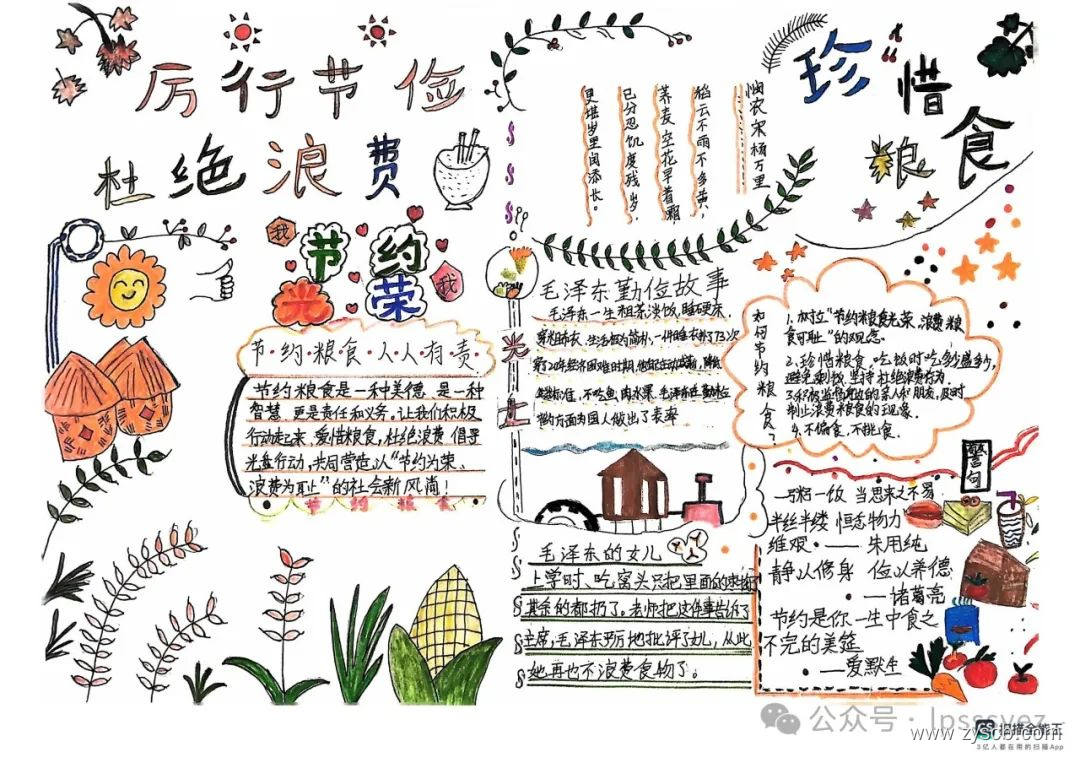 厉行节俭
杜绝浪费
我
节约
光荣
我
节·约·粮·食·人·人·有·责
节约粮食是一种美德,是一种
智慧,更是责任和义务,让我们积极
行动起来,爱惜粮食,杜绝浪费,倡导
光盘行动,共同营造以“节约为荣、
浪费为耻”的社会新风尚!
节约粮食
光
士
悯农 宋 杨万里
稻云不雨不多黄,
荞麦空花早着霜,
已分忍饥度残岁,
更堪岁里闰添长。
珍惜
粮食
毛泽东勤俭故事
毛泽东一生粗茶淡饭,睡硬床,
穿粗布衣,生活极为简朴,一件睡衣补了73次
穿了20年经济困难时期,他
生活标准,不吃鱼,肉水果。毛泽东在勤俭
的方面为国人做出了表率
毛泽东的女儿
上学时、吃窝头只把里面的枣
其余的都扔了。老师把这件事告诉了
主席,毛泽东严厉地批评了女儿,从此
她再也不浪费食物了。
如何节约粮食?
1、树立“节约粮食光荣,浪费粮
食可耻”的观念。
2、珍惜粮食,吃饭时吃多少盛多少,
避免剩饭,坚持杜绝浪费行为。
3、积极监督身边的亲人和朋友,及时
制止浪费粮食的现象。
4、不偏食,不挑食。
警句
一粥一饭 当思来之不易
半丝半缕 恒念物力
维艰·——朱用纯
静以修身 俭以养德
·——诸葛亮
节约是你一生中食之
不完的美筵
·——爱默生
公众号·lpsssyez
www.zyscb.com
CS 扫描全能王
3亿人都在用的扫描App